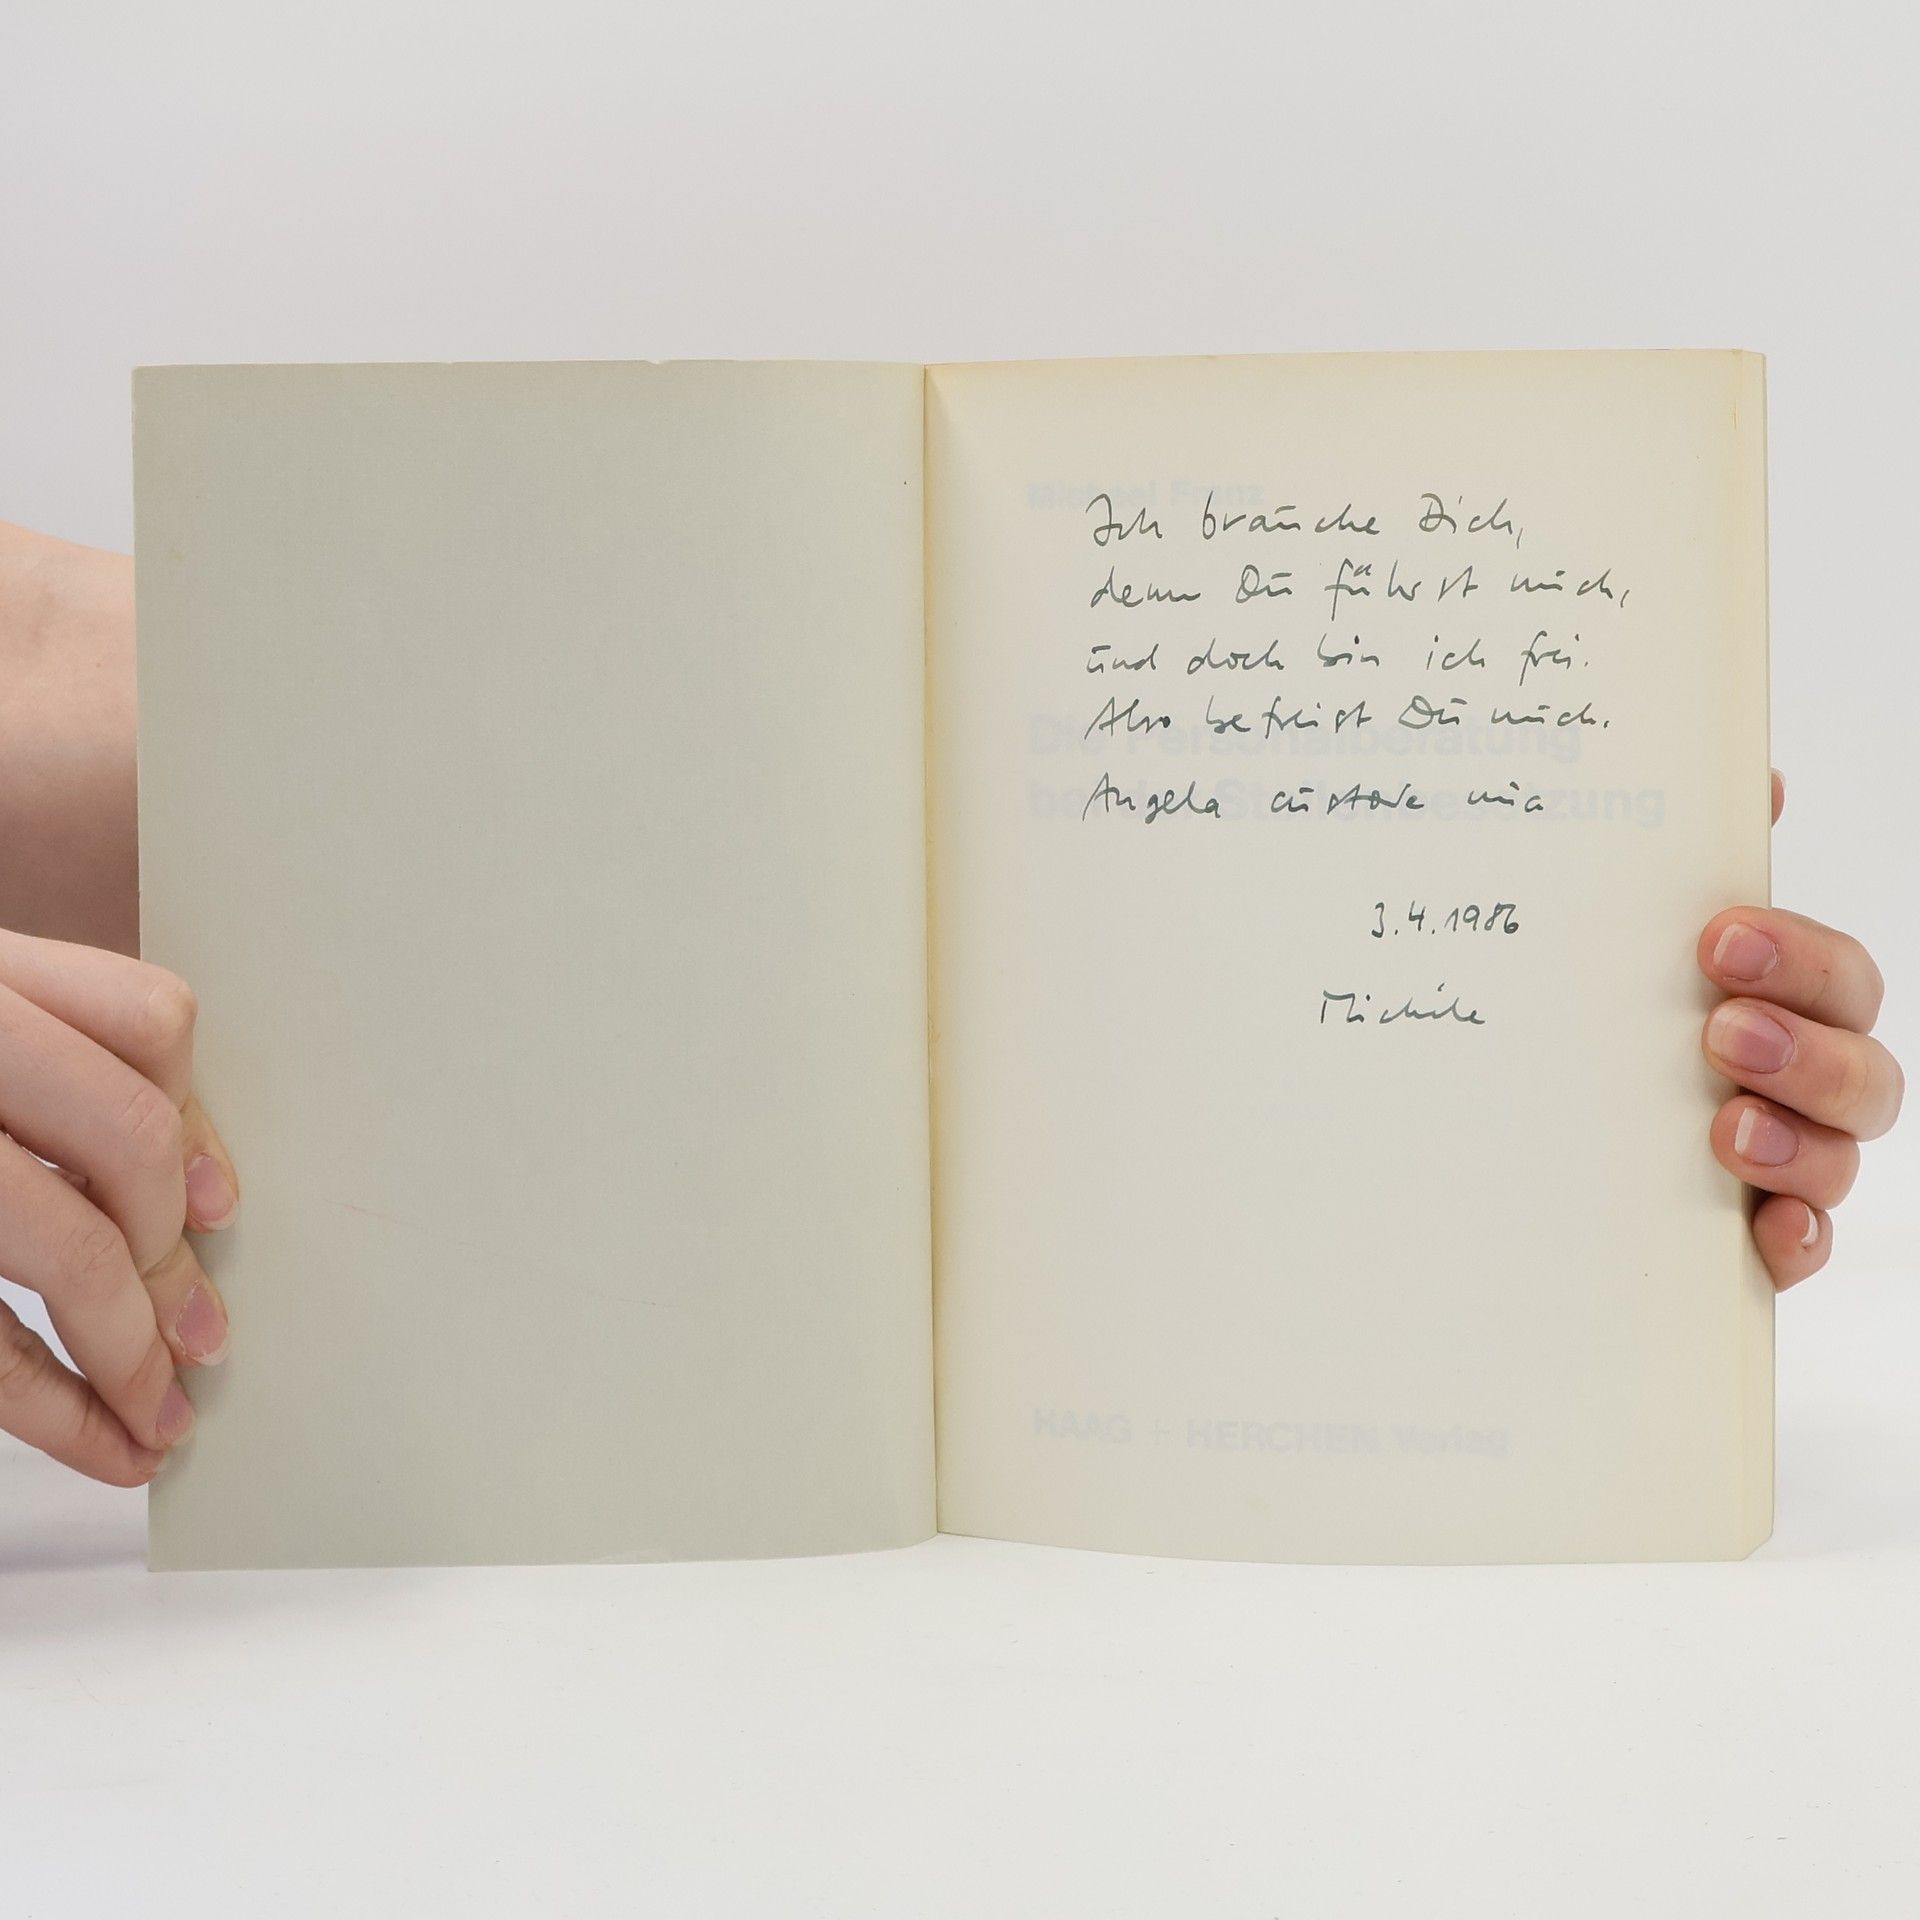 Michael Franz
Ich brauche Dich,
denn Du führst mich,
und doch bin ich frei.
Also befreist Du mich.
Die Personalberatung
Angela custode mia
bei der Stellenbesetzung
3.4.1986
Michele
HAAG + HERCHEN Verlag